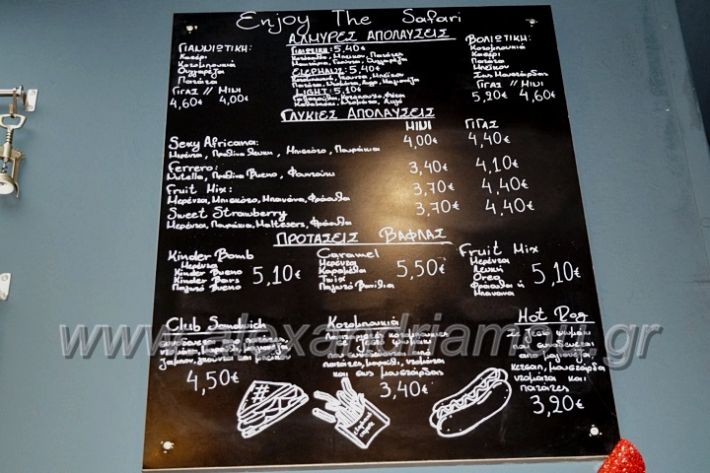 Enjoy The Safari
ΑΛΜΥΡΕΣ ΑΠΟΛΑΥΣΕΙΣ
ΓΙΑΝΝΙΩΤΙΚΗ:
Κασέρι
Κοτομπουκιά
Ουγγαρέζα
Πατάτα
ΓΙΓΑΣ // ΜΙΝΙ
4,60€ 4,00€
5,40€
5,40€
LIGHT: 5,10€
ΒΟΛΙΩΤΙΚΗ:
Κοτομπουκιά
Κασέρι
Πατάτα
Μπέικον
Σως Μουστάρδας
ΓΙΓΑΣ // ΜΙΝΙ
5,20€ 4,60€
ΓΛΥΚΙΕΣ ΑΠΟΛΑΥΣΕΙΣ
ΜΙΝΙ ΓΙΓΑΣ
Sexy Africana: 4,00€ 4,40€
Μερέντα, Πραλίνα Λευκή, Μπισκότο, Πουράκια
Ferrero: 3,40€ 4,10€
Nutella, Πραλίνα Bueno, Φουντούκι
Fruit Mix: 3,70€ 4,40€
Μερέντα, Μπισκότο, Μπανάνα, Φράουλα
Sweet Strawberry 3,70€ 4,40€
Μερέντα, Πουράκια, Maltesers, Φράουλα
ΠΡΟΤΑΣΕΙΣ ΒΑΦΛΑΣ
Kinder Bomb
Μερέντα
Kinder Bueno
Kinder Bars
Παγωτό Bueno
5,10€
Caramel
Μερέντα
Καραμέλα
Twix
Παγωτό Βανίλια
5,50€
Fruit Mix
Μερέντα
Λευκή
Oreo
Φράουλα ή
Μπανάνα
5,10€
Club Sandwich
4,50€
Κοτομπουκιά
πατάτες, μαρούλι, ντομάτα
και σως μουστάρδα
3,40€
Hot Dog
κέτσαπ, μουστάρδα
ντομάτα και
πατάτες
3,20€
www.alexandriamou.gr